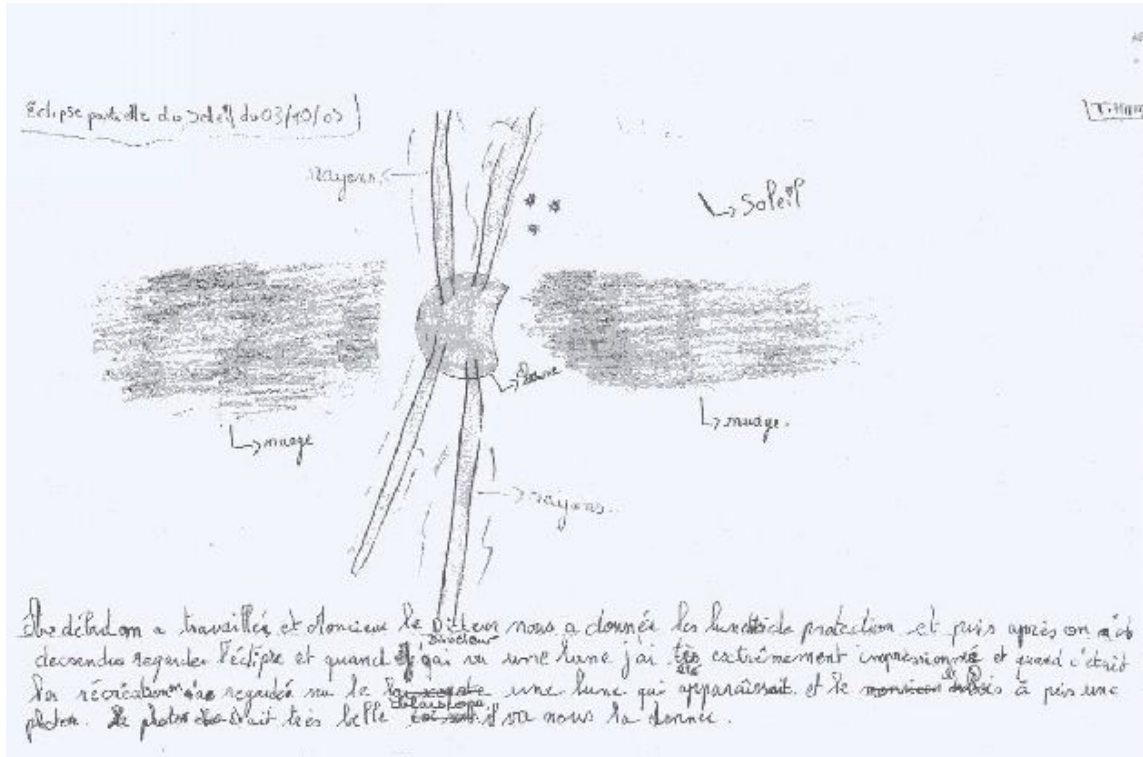 Eclipse partielle du Soleil du 03/10/05
rayons.
Soleil
Lune
nuage
nuage.
rayons.
début on a travaillés et Moncieur le Directeur nous a donnée les lunettes de protection et puis après on
descendus regarder l'éclipse et quand j'ai vu une lune jai été extrêmement impressionné et quand c'était
la récréation regardée sur le une lune qui apparaîssait et le à pris une
photon. photo était très belle il va nous la donnée.